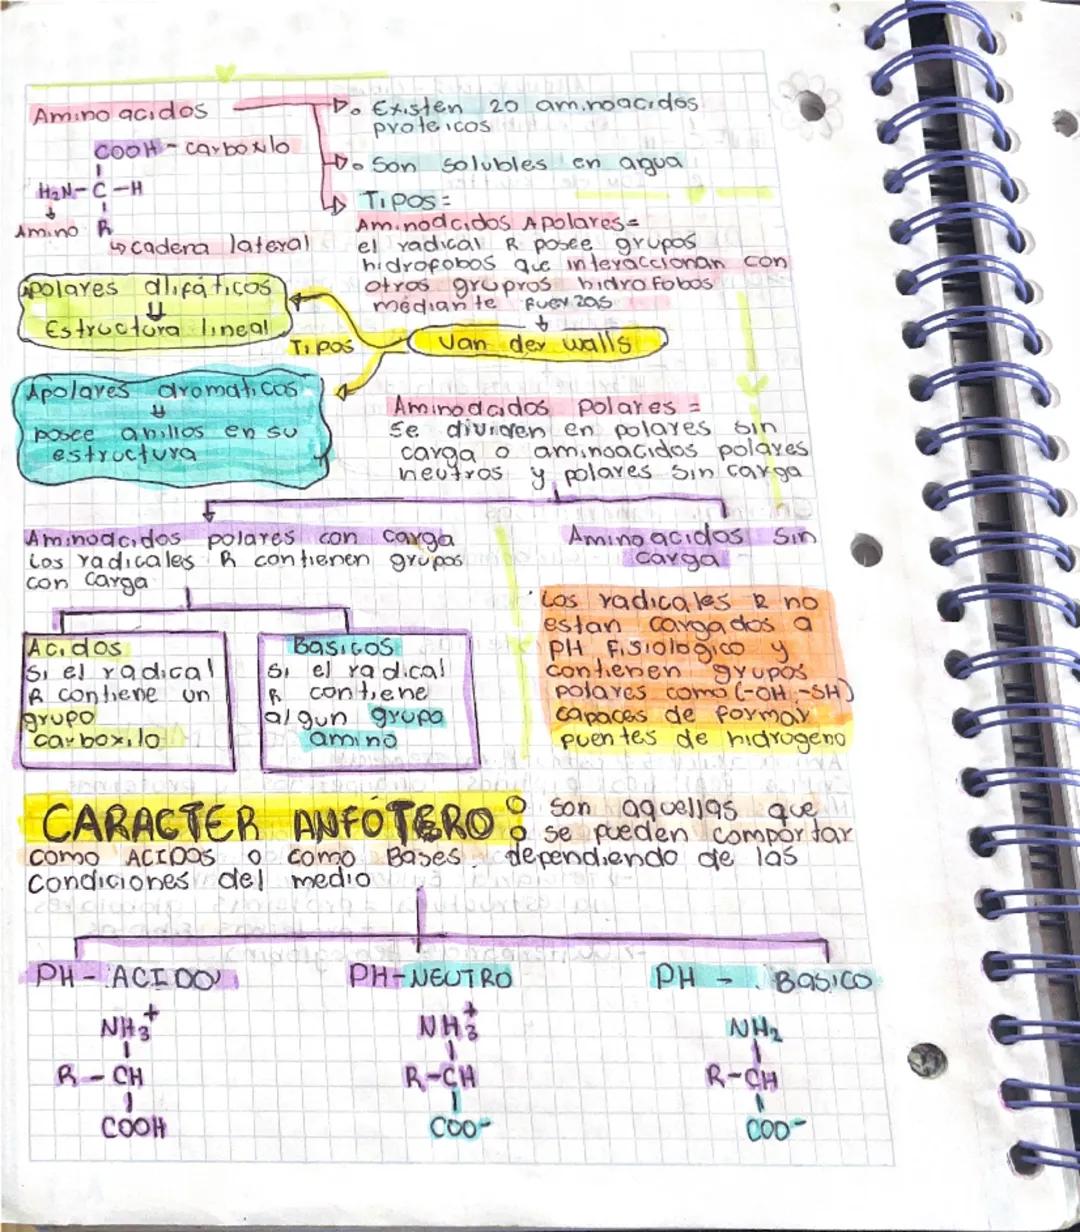 Aminoacidos
COOH - carboxilo
H₂N-C-H
Amino R
cadena lateral
Existen 20 aminoacidos
proteicos
Son solubles en agua
Tipos=
Aminoacidos Apolares=
el radical R posee grupos
hidrofobos que interaccionan con
otros grupros hidrofobos
mediante fuerzas
Van der walls
Tipos
Apolares alifáticos
Estructura lineal
Apolares aromaticos
posee anillos en su
estructura
Aminoacidos Polares=
Se dividen en polares sin
carga o aminoacidos polares
neutros y polares sin carga
Aminoacidos polares con carga
Los radicales R contienen grupos
con carga
Acidos
Si el radical
R contiene un
grupo
carboxilo
Basicos
Si el radical
R contiene
algun grupo
amino
Aminoacidos Sin
carga
Los radicales R no
estan cargados a
PH fisiologico y
contienen grupos
polares como (-OH,-SH)
capaces de formar
puentes de hidrogeno
CARACTER ANFÓTERO: son aquellas que
se pueden comportar
como ACIDOS o como Bases dependiendo de las
condiciones del medio
PH - ACIDO
NH₃⁺
R - CH
COOH
PH-NEUTRO
NH₃⁺
R-CH
COO⁻
PH - BASICO
NH₂
R-CH
COO⁻